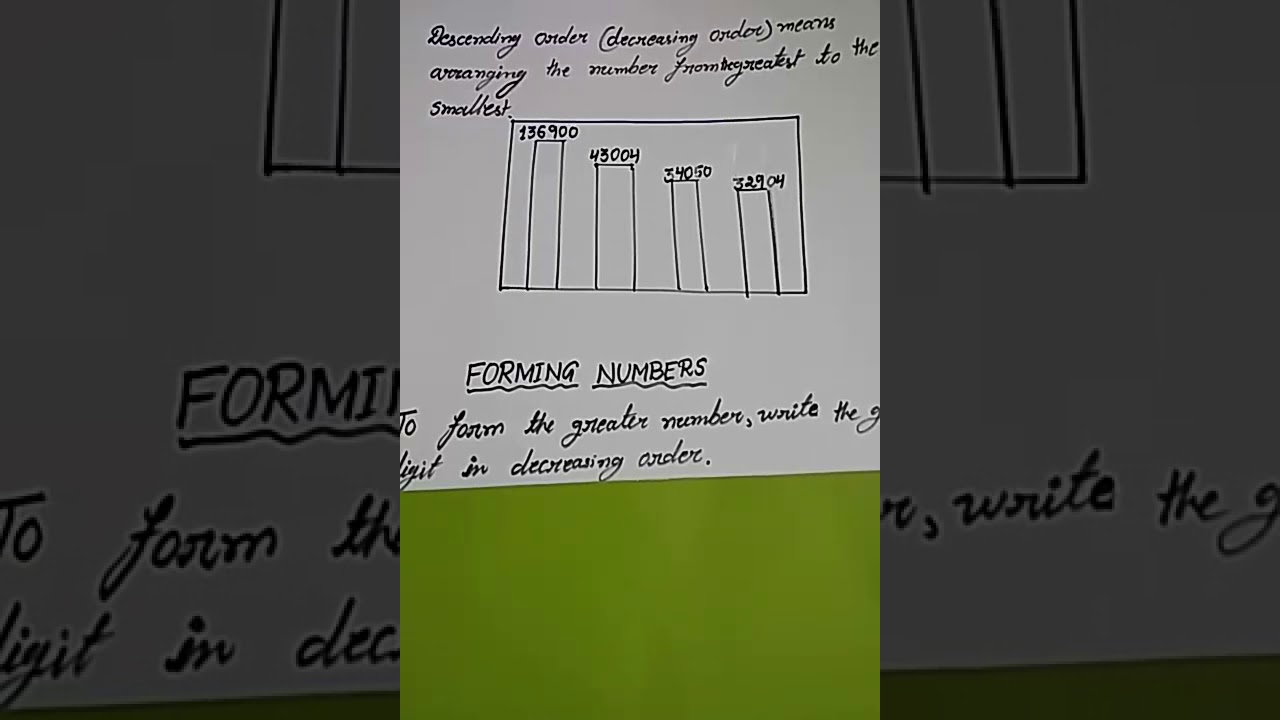 Descending order (decreasing order) means
arranging the number from greatest to the
smallest.
136900
43004
34050
32904
FORMING NUMBERS
To form the greater number, write the g
digit in decreasing order.